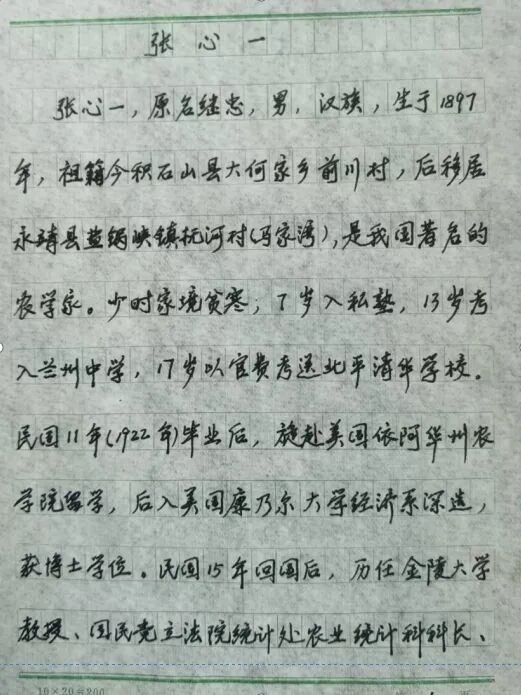 张心一
张心一，原名继忠，男，汉族，生于1897
年，祖籍今积石山县大何家乡前川村，后移居
永靖县盐锅峡镇抚河村(马家湾)，是我国著名的
农学家。少时家境贫寒；7岁入私塾，13岁考
入兰州中学，17岁以官费考送北平清华学校。
民国11年(1922年)毕业后，旋赴美国依阿华州农
学院留学，后入美国康乃尔大学经济系深造，
获博士学位。民国15年回国后，历任金陵大学
教授、国民党立法院统计处农业统计科科长、
10×20=200